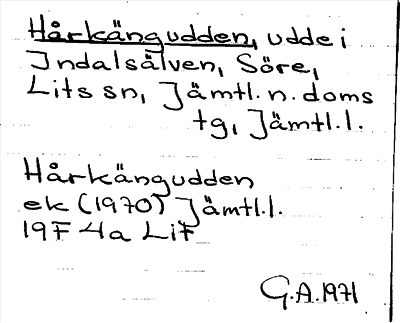 Hårkängudden, udde i
Indalsälven, Söre,
Lits sn, Jämtl. n. doms
tg, Jämtl. l.
Hårkängudden
ek (1970) Jämtl. l.
19F 4a Lit
G.A. 1971